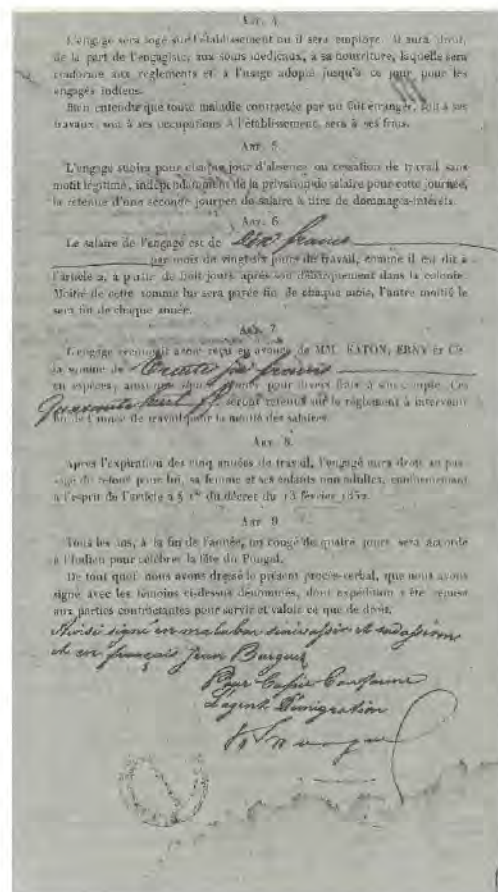 ART. 4
L'engagé sera logé sur l'établissement où il sera employé. Il aura droit,
de la part de l'engagiste, aux soins médicaux, à sa nourriture, laquelle sera
conforme aux règlements et à l'usage adopté jusqu'à ce jour pour les
engagés indiens.
Bien entendu que toute maladie contractée par un fait étranger, soit à ses
travaux, soit à ses occupations à l'établissement, sera à ses frais.
ART. 5
L'engagé subira pour chaque jour d'absence ou cessation de travail sans
motif légitime, indépendamment de la privation de salaire pour cette journée,
la retenue d'une seconde journée de salaire à titre de dommages-intérêts.
ART. 6
Le salaire de l'engagé est de Dix francs
par mois de vingt-six jours de travail, comme il est dit à
l'article 2, à partir de huit jours après son débarquement dans la colonie.
Moitié de cette somme lui sera payée fin de chaque mois, l'autre moitié le
sera fin de chaque année.
ART. 7
L'engagé reconnaît avoir reçu en avance de MM. Cie
la somme de francs
en espèces, pour divers frais à son compte. Ces
Quarante huit f. seront retenus sur le règlement à intervenir
fin de l'année de travail pour la moitié des salaires.
ART. 8
Après l'expiration des cinq années de travail, l'engagé aura droit au pas-
sage de retour pour lui, sa femme et ses enfants non adultes, conformément
à l'esprit de l'article 2 § 1er du décret du 13 février 1852.
ART. 9
Tous les ans, à la fin de l'année, un congé de quatre jours sera accordé
à l'Indien pour célébrer la fête du Pongal.
De tout quoi nous avons dressé le présent procès-verbal, que nous avons
signé avec les témoins ci-dessus dénommés, dont expédition a été remise
aux parties contractantes pour servir et valoir ce que de droit.
signé en malabar et
et en français Jean
Pour Copie Conforme
L'agent d'émigration